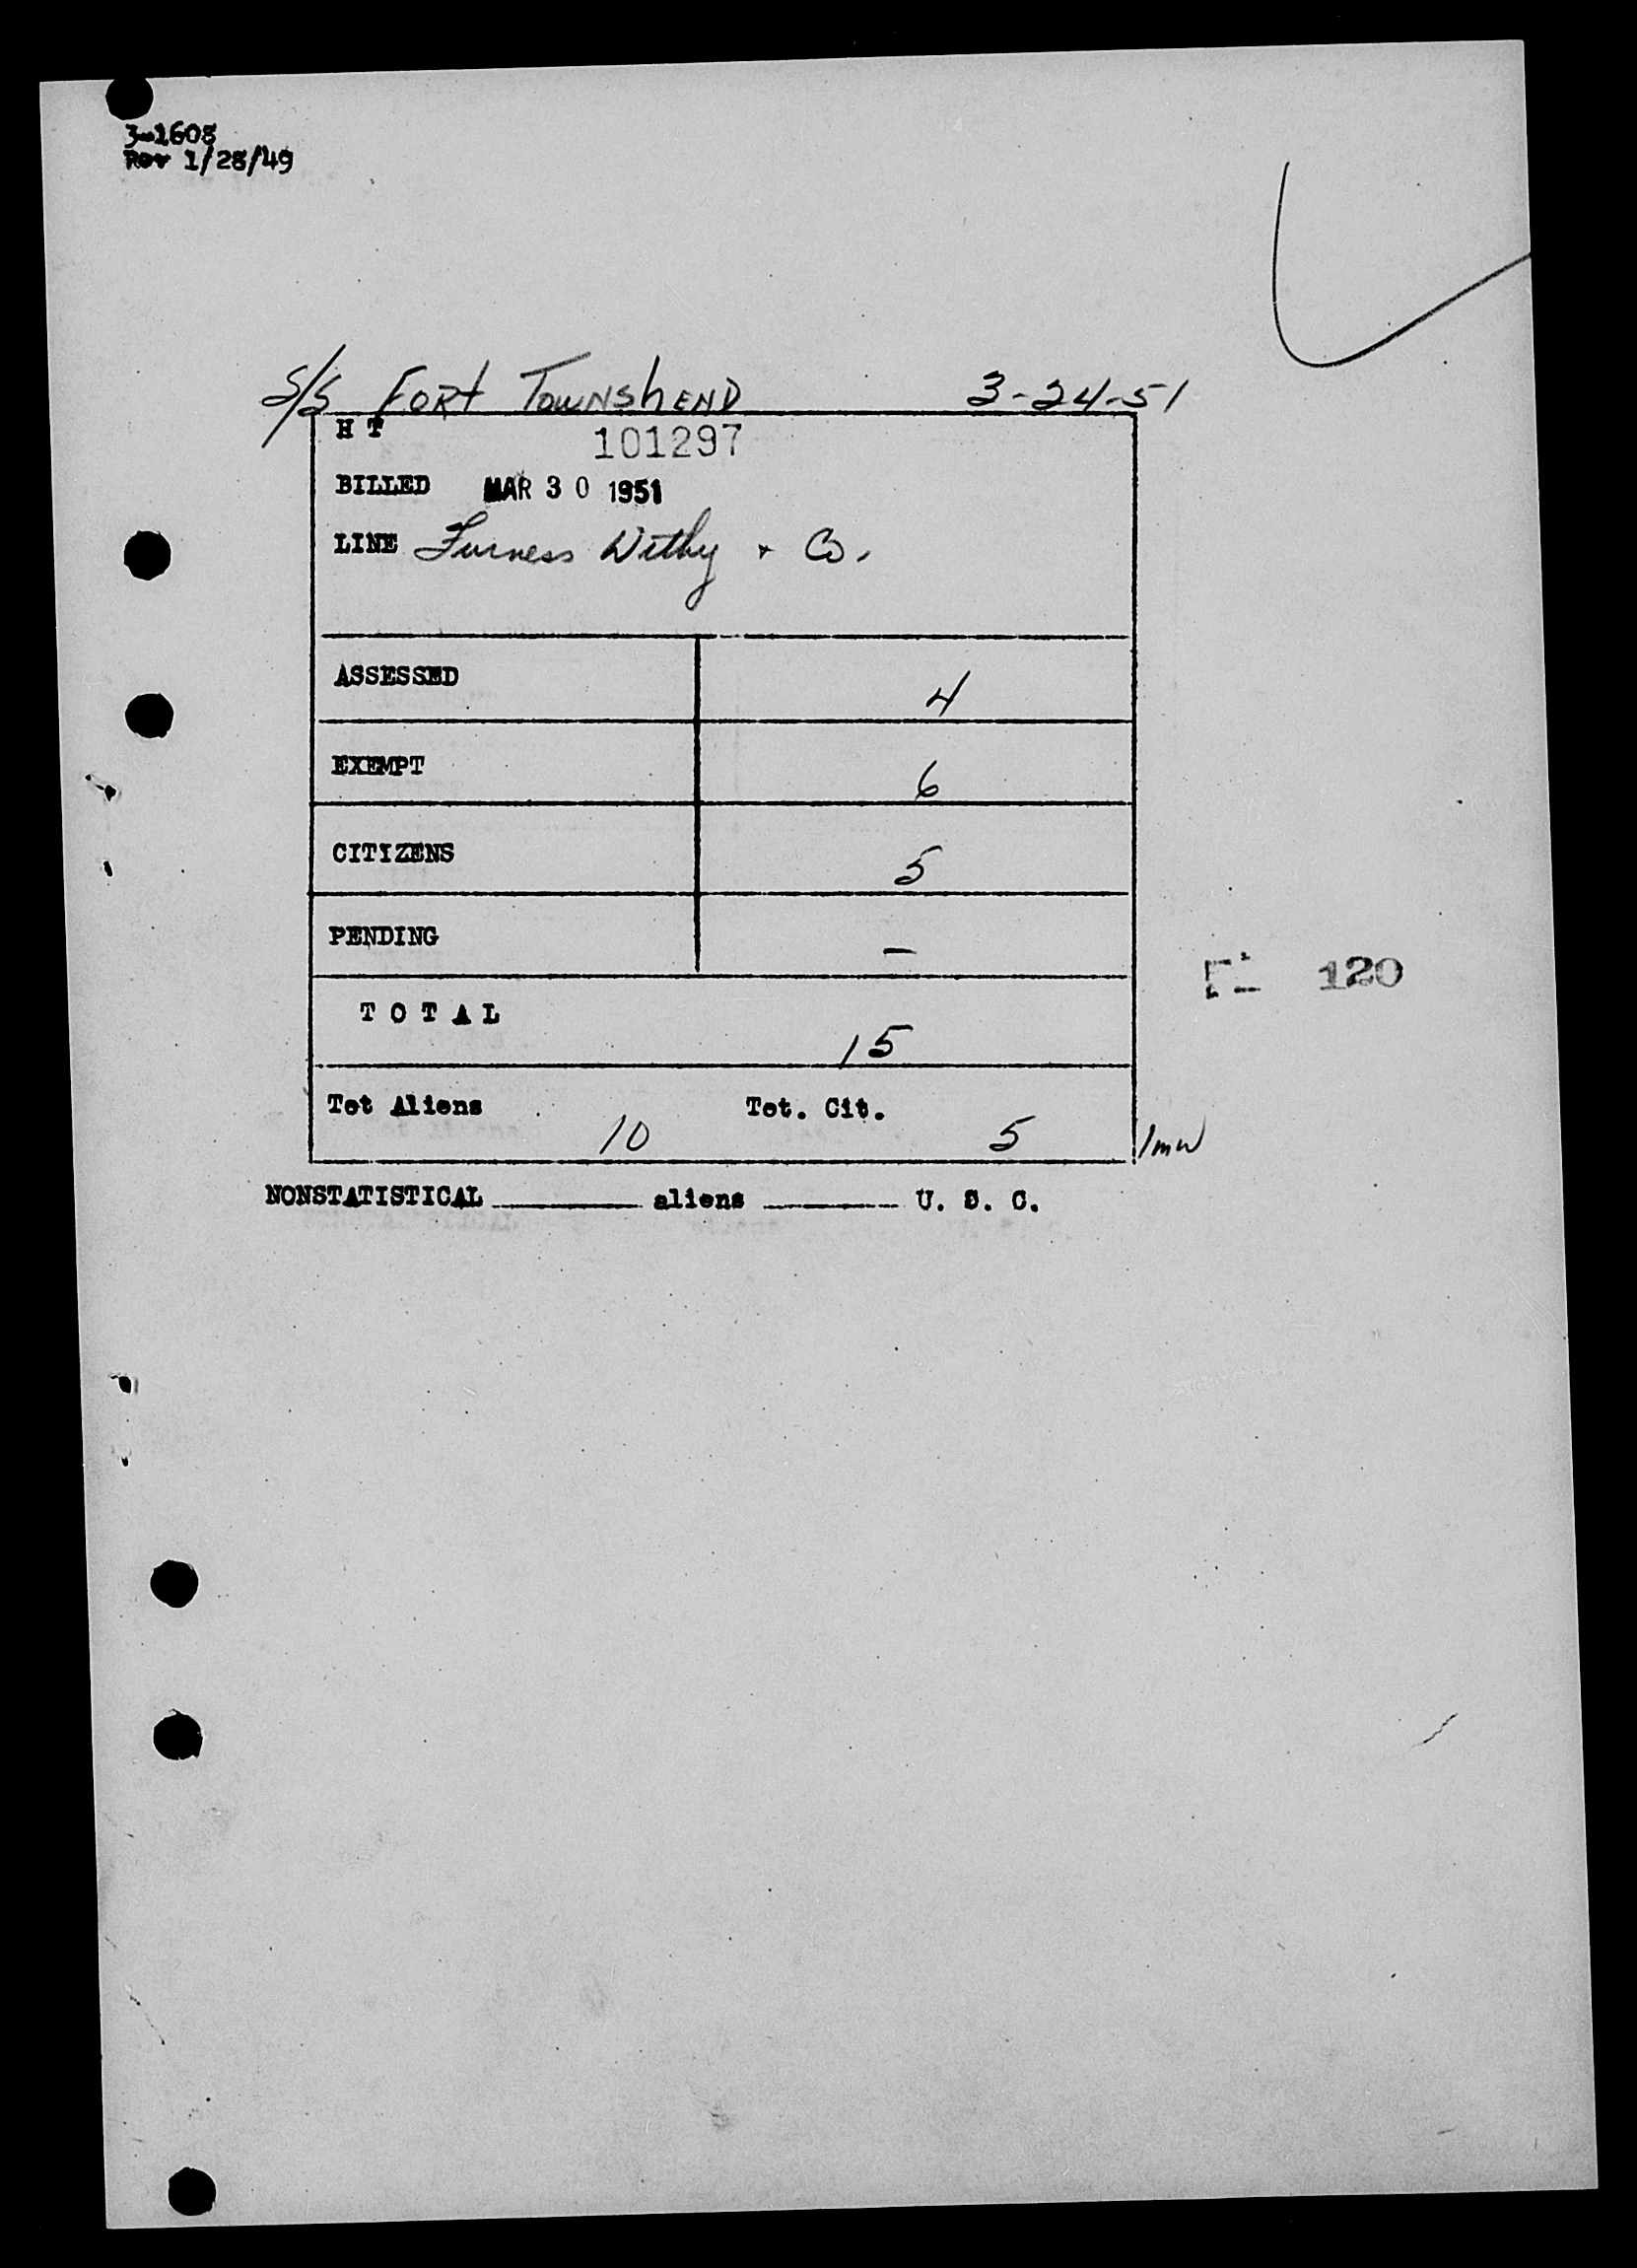 3-1608
Rev 1/28/49
S/S Fort Townshend 3-24-51
H T 101297
BILLED MAR 30 1951
LINE Furness Withy & Co.
ASSESSED 4
EXEMPT 6
CITIZENS 5
PENDING —
120
TOTAL 15
Tot Aliens 10 Tot. Cit. 5
NONSTATISTICAL ______ aliens ______ U. S. C.